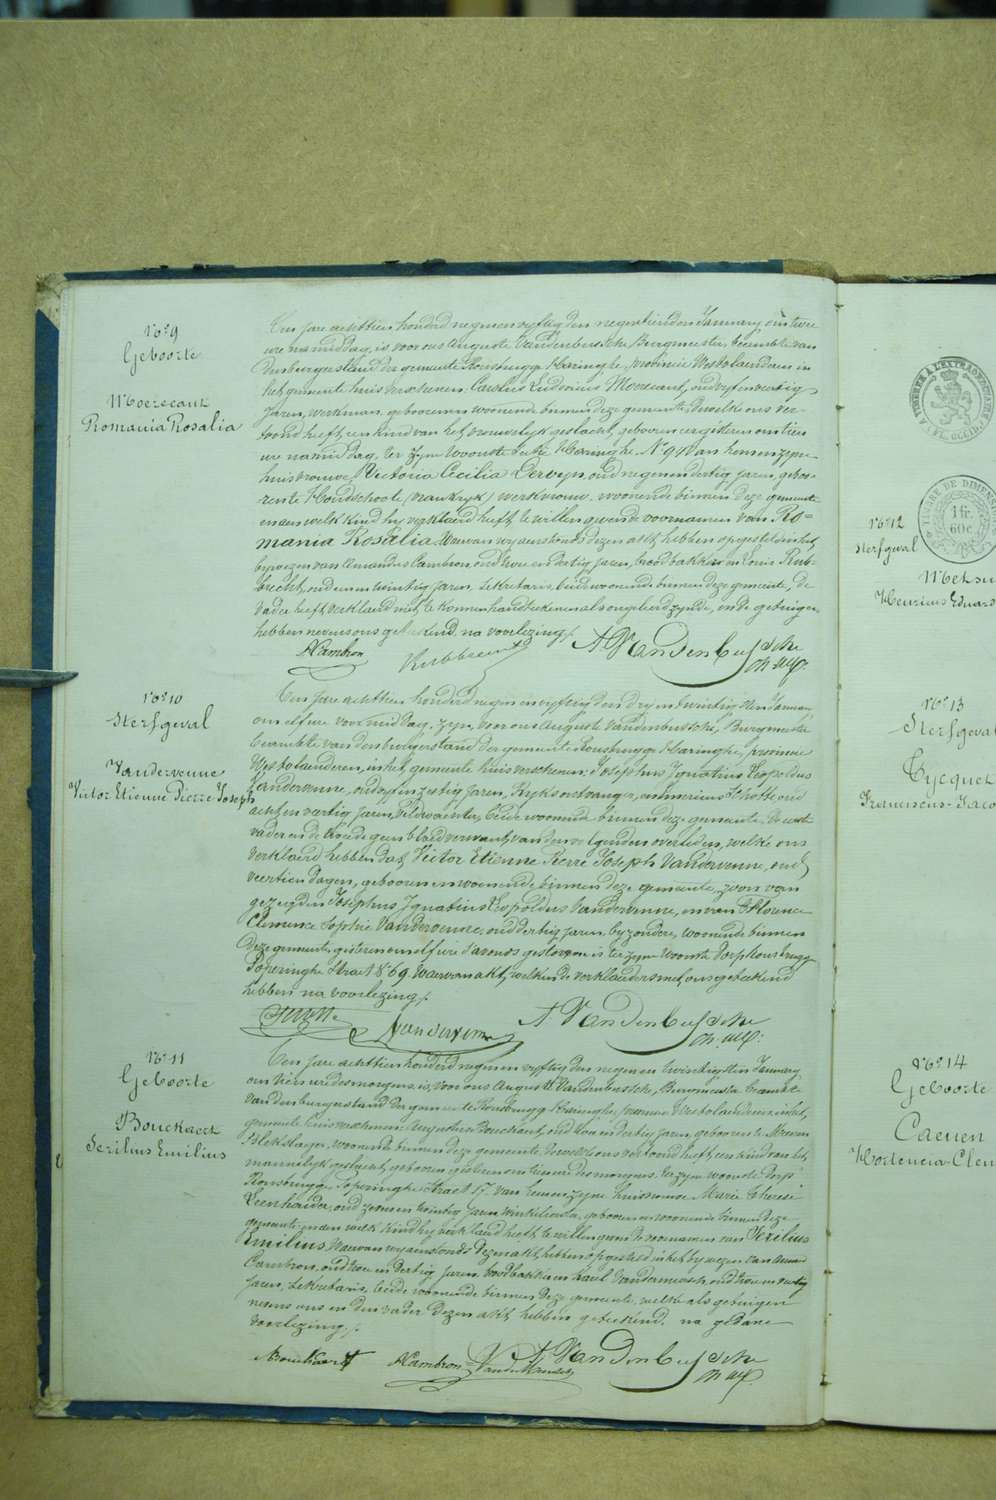 N° 9
Geboorte
Moerecant
Romania Rosalia
Ten jare achttien honderd negen en vyftig den negentienden January om twee
ure na middag, is voor ons Auguste Vandenbussche Burgmeester, beambte van
den burgerstand der gemeente Rousbrugge Haringhe, provincie Westvlaenderen in
het gemeente huis verschenen: Carolus Ludovicus Moerecant, oud vyf en veertig
jaren, werkman, geboren en woonende binnen deze gemeente, dewelke ons ver-
toond heeft, een kind van het vrouwelyk geslacht, geboren eergisteren om tien
ure na middag, ter zyne woonste Sectie Haringhe, N° 94 van hem en zyne
huisvrouwe Victoria Cecilia Derveyn, oud negen en dertig jaren, gebo-
ren te Hondschoote (vrankryk) werkvrouw, woonende binnen deze gemeente
en aen welk kind hy verklaerd heeft te willen geven de voornamen van Ro=
mania Rosalia. Waervan wy aenstonds dezen akt hebben opgesteld in het
bywezen van Amandus Cambron, oud twee en dertig jaren, broodbakker en Louis Rub-
brecht, oud een en twintig jaren, sekretaris, beide woonende binnen deze gemeente, de
vader heeft verklaerd niet te konnen handteekenen als ongeleerd zynde, en de getuigen
hebben nevens ons geteekend na voorlezing /.
A Cambron Rubbrecht A Vandenbussche
N° 10
Sterfgeval
Vandervenne
Victor Etienne Pierre Joseph
Ten jare achttien honderd negen en vyftig den dry en twintigsten January,
om elf ure voormiddag, zyn voor ons Auguste Vandenbussche, Burgmeester
beambte van den burgerstand der gemeente Rousbrugge Haringhe, provincie
Westvlaenderen, in het gemeente huis verschenen: Josephus Ignatius Leopoldus
Vandervenne, oud vyf en zestig jaren, Ryksontvanger, en Americus Schotte oud
acht en veertig jaren, veldwachter, beide woonende binnen deze gemeente, de eerste
vader en de tweede geen bloedverwant van den volgenden overleden, welke ons
verklaerd hebben dat Victor Etienne Pierre Joseph Vandervenne, oud
veertien dagen, geboren en woonende binnen deze gemeente, zoon van
gezeyden Josephus Ignatius Leopoldus Vandervenne, en van Florence
Clemence Sophie Vandervenne, oud dertig jaren, byzondere, woonende binnen
deze gemeente, gisteren om elf ure s'avonds gestorven is ter zyne woonste dorp Rousbrugge
Poperinghe Straet N° 69. Waervan akt, welken de verklaerders met ons geteekend
hebben na voorlezing /.
Schotte Vandervenne A Vandenbussche
N° 11
Geboorte
Bouckaert
Serilius Emilius
Ten jare achttien honderd negen en vyftig den negen en twintigsten January,
om tien ure des morgens, is voor ons Auguste Vandenbussche, Burgmeester beambte
van den burgerstand der gemeente Rousbrugge Haringhe, provincie Westvlaenderen in het
gemeente huis verschenen: Bouckaert, oud twee en dertig jaren, geboren te
blekslager, woonende binnen deze gemeente, dewelke ons vertoond heeft, een kind van het
mannelyk geslacht, geboren gisteren om tien ure des morgens, ter zyne woonste dorp
Rousbrugge Poperinghe Straet 17. van hem en zyne huisvrouwe Marie Therese
Leenknecht, oud zeven en twintig jaren, winkelierster, geboren en woonende binnen deze
gemeente, en aen welk kind hy verklaerd heeft te willen geven de voornamen van Serilius
Emilius. Waervan wy aenstonds dezen akt hebben opgesteld in het bywezen van Amand
Cambron, oud twee en dertig jaren, broodbakker en Karel Vandermersch, oud twee en dertig
jaren, sekretaris, beide woonende binnen deze gemeente, welke als getuigen
nevens ons en den vader dezen akt hebben geteekend. na gedane
voorlezing /.
Bouckaert A Cambron A Vandenbussche
TIMBRE DE DIMENS
1 fr.
60 c.
N° 12
Sterfgeval
Henricus Eduard
N° 13
Sterfgeval
Cycquet
Franciscus-Jaco
N° 14
Geboorte
Caenen
Hortencia-Clem